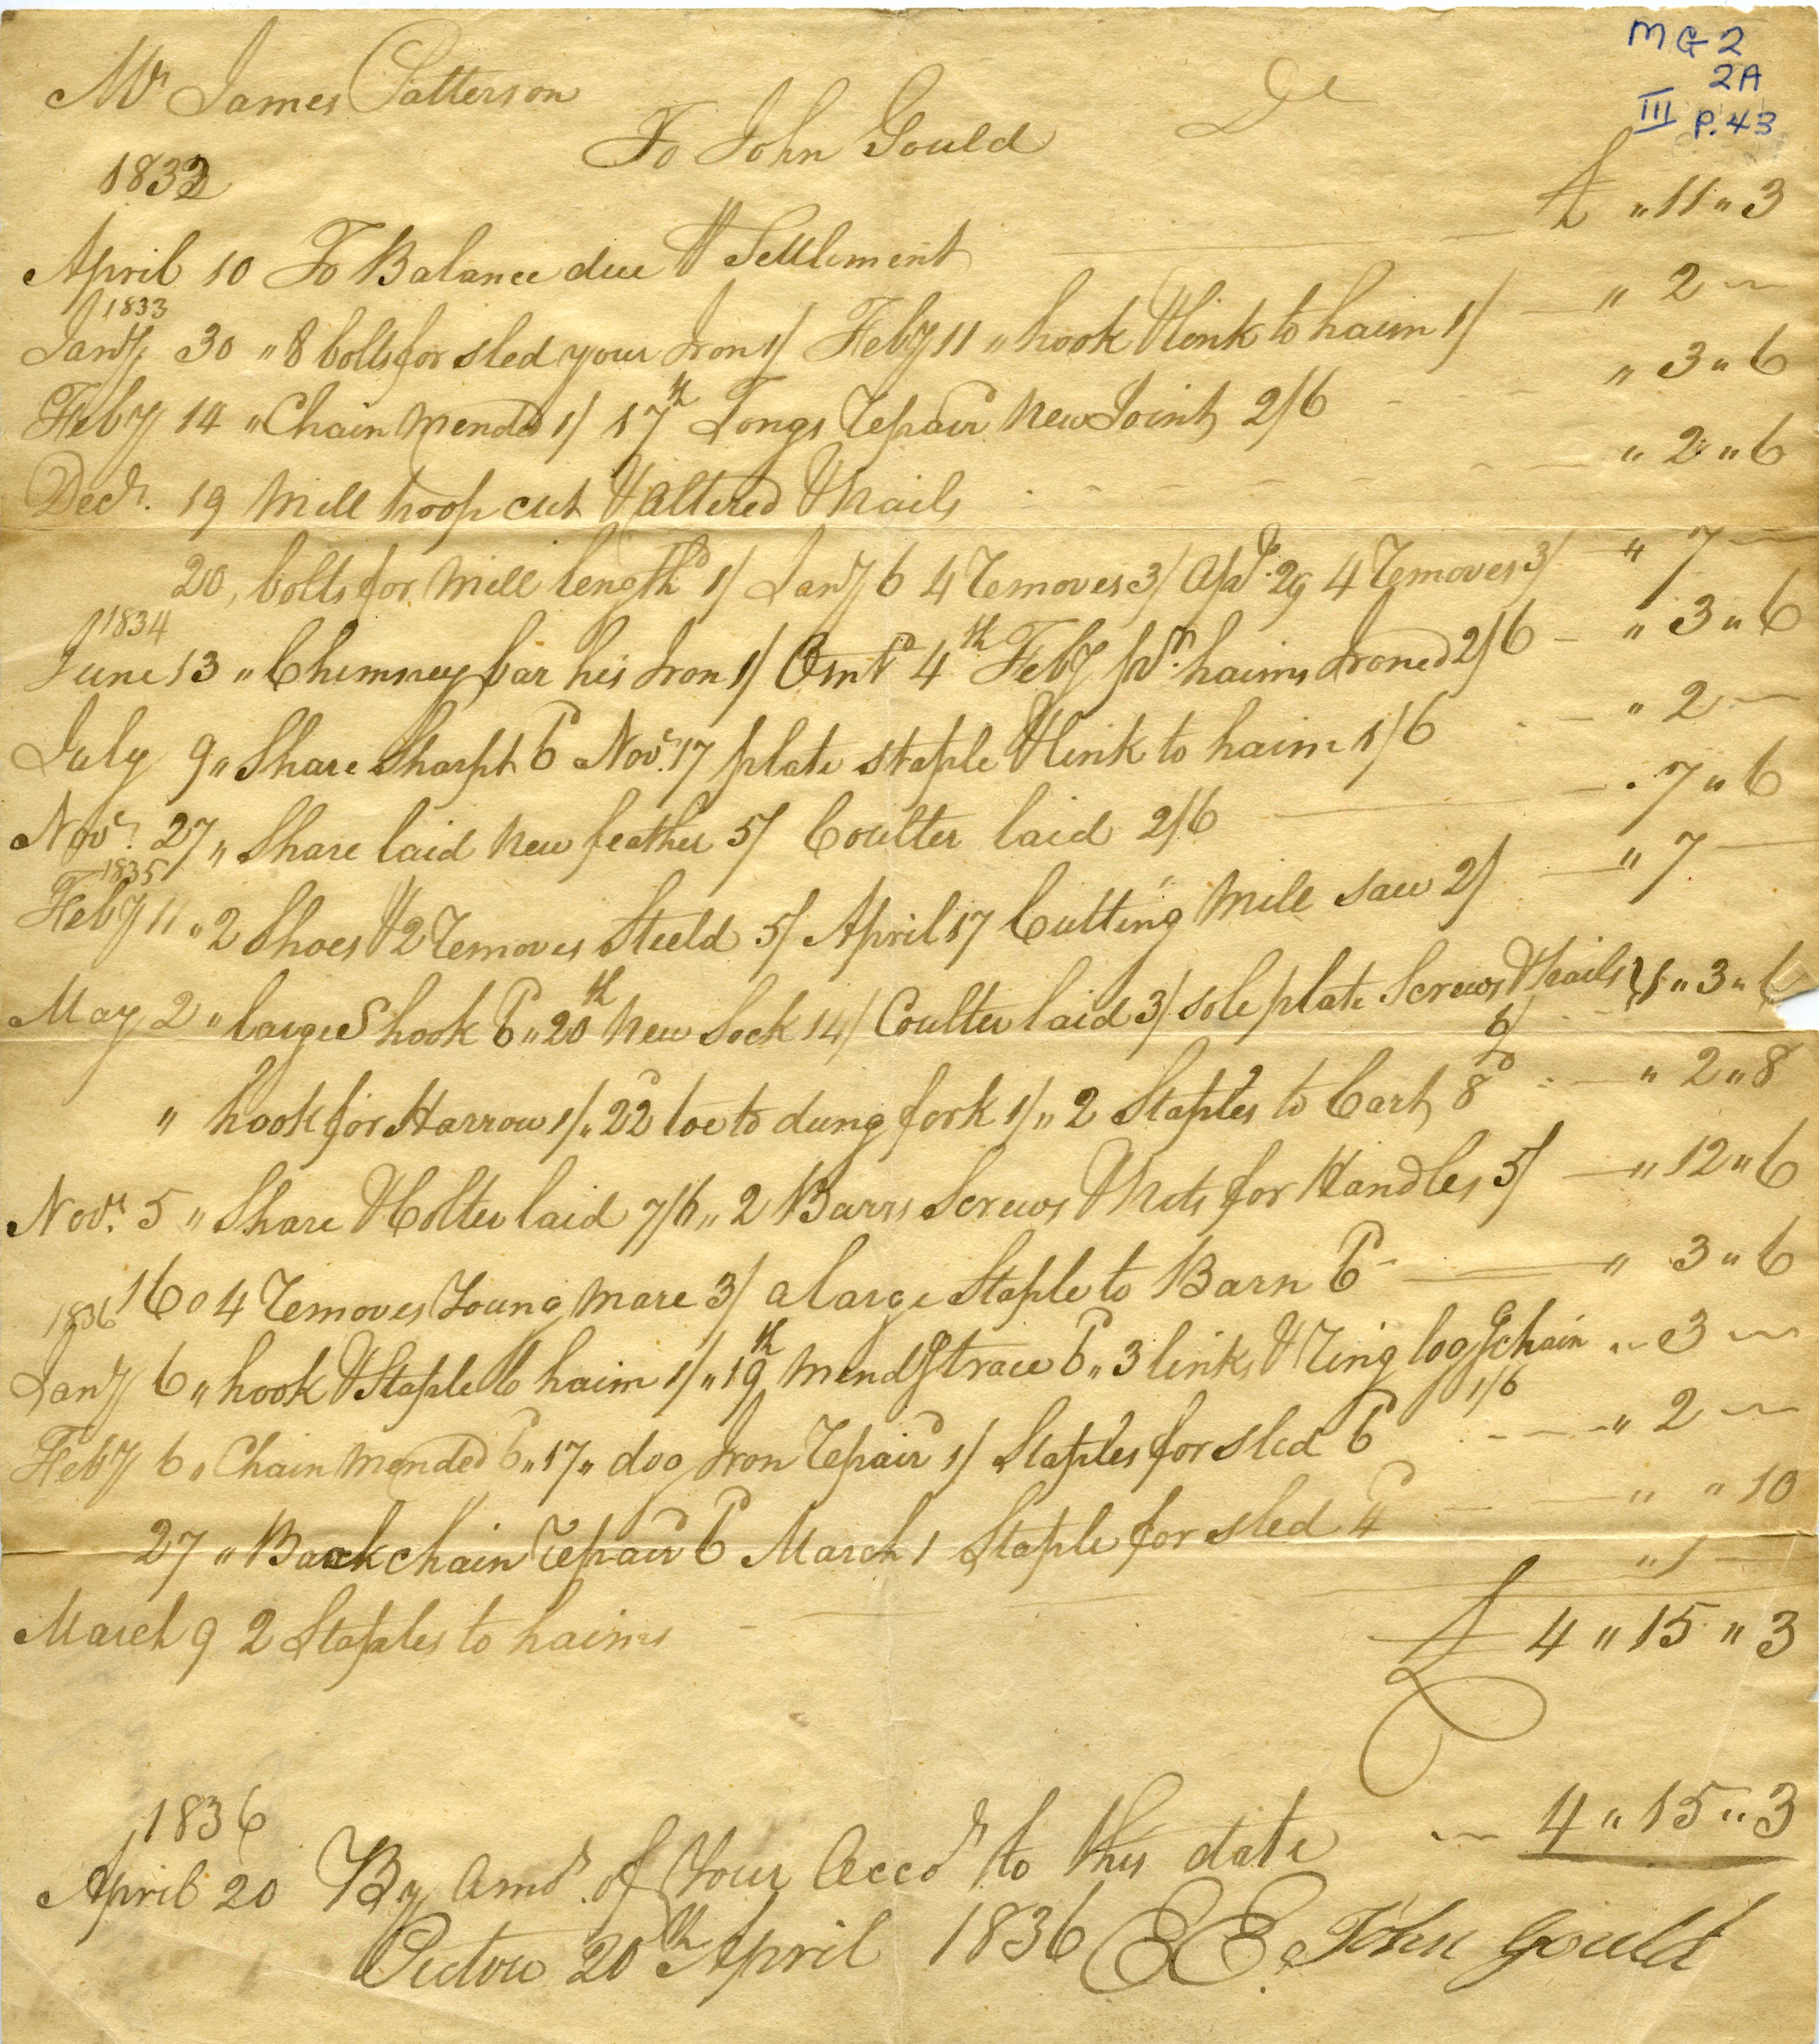 MG 2
2A
III P.43
Mr James Patterson Dr
To John Gould
1832
April 10 To Balance due & Settlement £ " 11 " 3
1833
Jany 30 " 8 bolts for sled your Iron 1/ Feby 11 " hook & link to haim 1/ " 2 —
Feby 14 " Chain mended 1/ 17th Tongs repair new Joint 2/6 " 3 " 6
Decr. 19 Mill hoop cut & altered & Nails " 2 " 6
20, bolts for Mill lengthd 1/ Jany 6 4 removes 3/ Apl. 29 4 removes 3/ " 7 —
1834
June 13 " Chimney bar his Iron 1/ Omtd 4th Feby pr. haims Ironed 2/6 " 3 " 6
July 9 " Share Sharpt 6d Novr. 17 plate staple & link to haim 1/6 " 2 —
Novr. 27 " Share laid new feather 5/ Coulter laid 2/6 " 7 " 6
1835
Feby 11 " 2 Shoes & 2 removes Steeld 5/ April 17 Cutting Mill saw 2/ " 7 —
May 2 " large S hook 6d " 20th New Sock 14/ Coulter laid 3/ sole plate Screws & Nails 1 " 3 " 6
6/
" hook for Harrow 1/ " 22 toe to dung fork 1/ " 2 Staples to Cart 8d " 2 " 8
Novr. 5 " Share & Colter laid 7/6 " 2 Barrs Screws & Nuts for Handles 5/ " 12 " 6
16 " 4 removes Young mare 3/ a large Staple to Barn 6d " 3 " 6
1836
Jany 6 " hook & Staple to haim 1/ " 19th mendg trace 6d " 3 links & ring loogchain " 3 —
1/6
Feby 6 " Chain mended 6d " 17 " dog Iron repair 1/ Staples for sled 6d " 2 —
27 " Back chain repair 6d March 1 Staple for sled 4d " " 10
March 9 2 Staples to haims " 1 —
£ 4 " 15 " 3
1836
April 20 By Amt. of Your Accot to this date 4 " 15 " 3
Pictou 20th April 1836 EE. John Gould